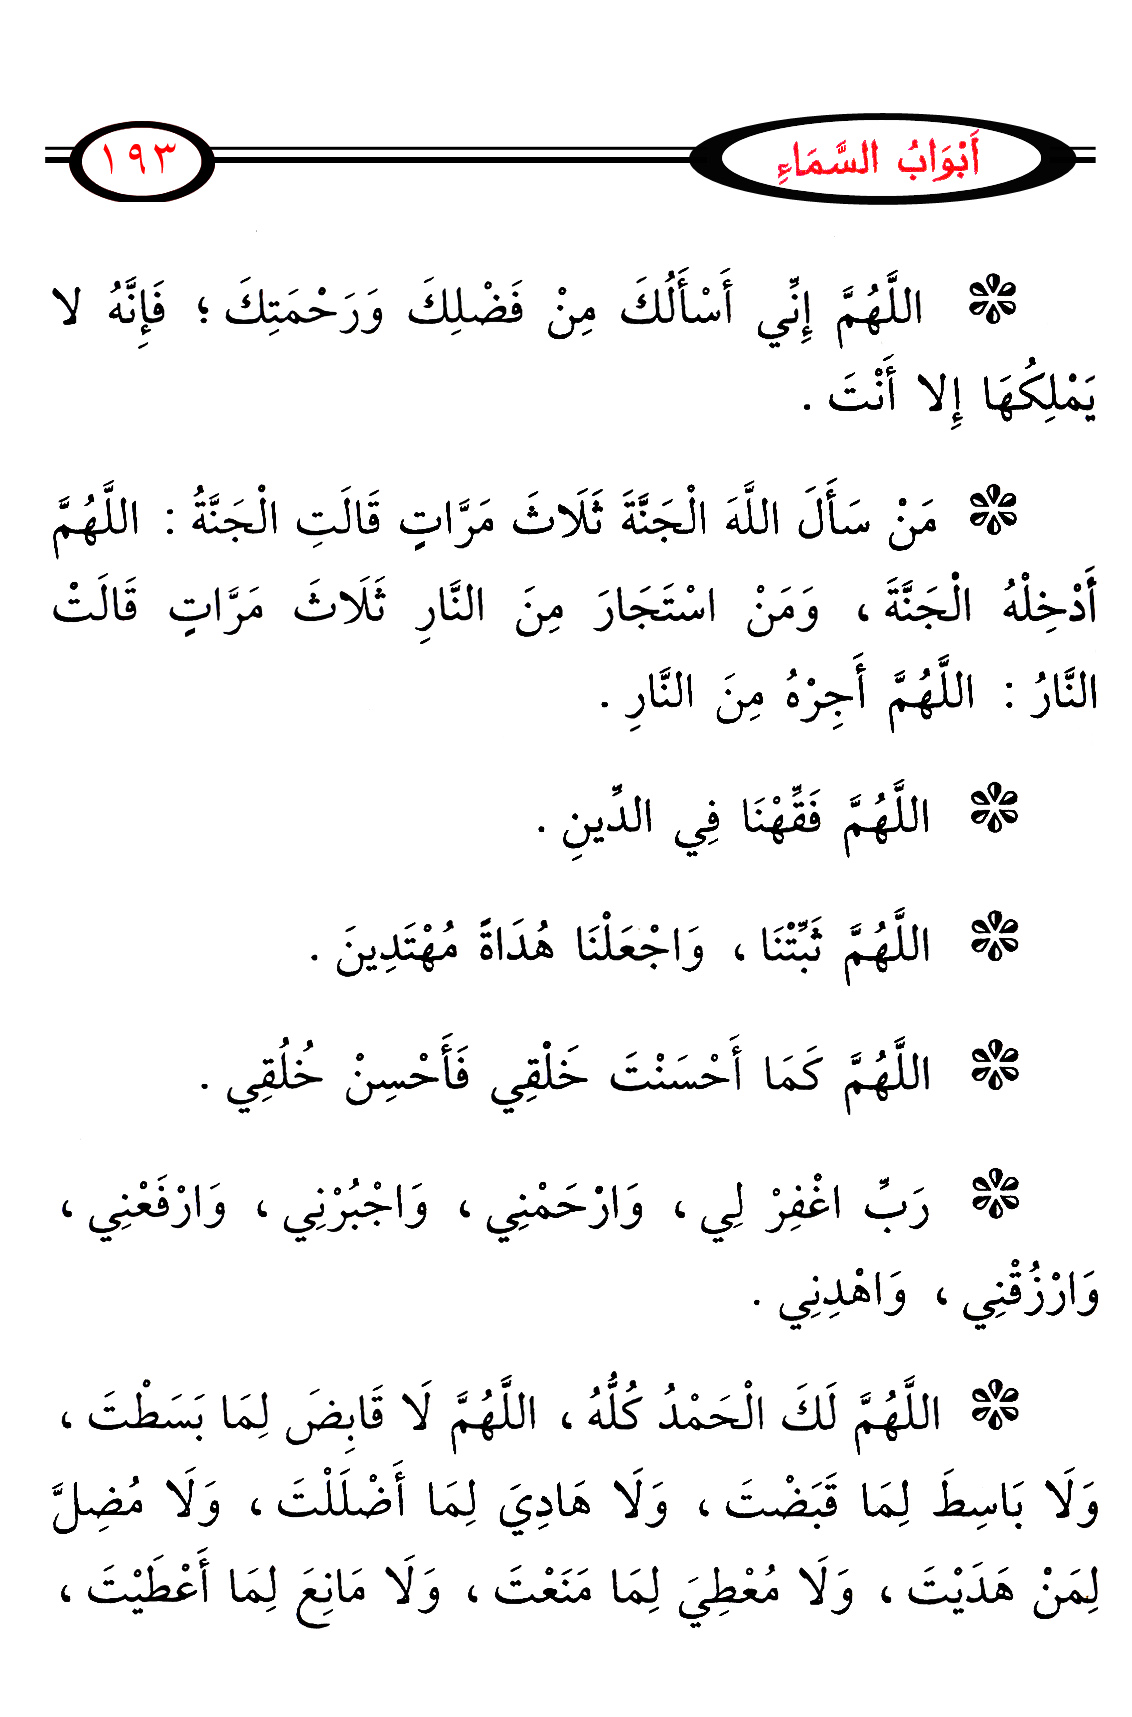 أَبْوَابُ السَّمَاءِ ١٩٣
اللَّهُمَّ إِنِّي أَسْأَلُكَ مِنْ فَضْلِكَ وَرَحْمَتِكَ ؛ فَإِنَّهُ لا
يَمْلِكُهَا إِلا أَنْتَ .
مَنْ سَأَلَ اللَّهَ الْجَنَّةَ ثَلَاثَ مَرَّاتٍ قَالَتِ الْجَنَّةُ : اللَّهُمَّ
أَدْخِلْهُ الْجَنَّةَ ، وَمَنْ اسْتَجَارَ مِنَ النَّارِ ثَلَاثَ مَرَّاتٍ قَالَتْ
النَّارُ : اللَّهُمَّ أَجِرْهُ مِنَ النَّارِ .
اللَّهُمَّ فَقِّهْنَا فِي الدِّينِ .
اللَّهُمَّ ثَبِّتْنَا ، وَاجْعَلْنَا هُدَاةً مُهْتَدِينَ .
اللَّهُمَّ كَمَا أَحْسَنْتَ خَلْقِي فَأَحْسِنْ خُلُقِي .
رَبِّ اغْفِرْ لِي ، وَارْحَمْنِي ، وَاجْبُرْنِي ، وَارْفَعْنِي ،
وَارْزُقْنِي ، وَاهْدِنِي .
اللَّهُمَّ لَكَ الْحَمْدُ كُلُّهُ ، اللَّهُمَّ لَا قَابِضَ لِمَا بَسَطْتَ ،
وَلَا بَاسِطَ لِمَا قَبَضْتَ ، وَلَا هَادِيَ لِمَا أَضْلَلْتَ ، وَلَا مُضِلَّ
لِمَنْ هَدَيْتَ ، وَلَا مُعْطِيَ لِمَا مَنَعْتَ ، وَلَا مَانِعَ لِمَا أَعْطَيْتَ ،